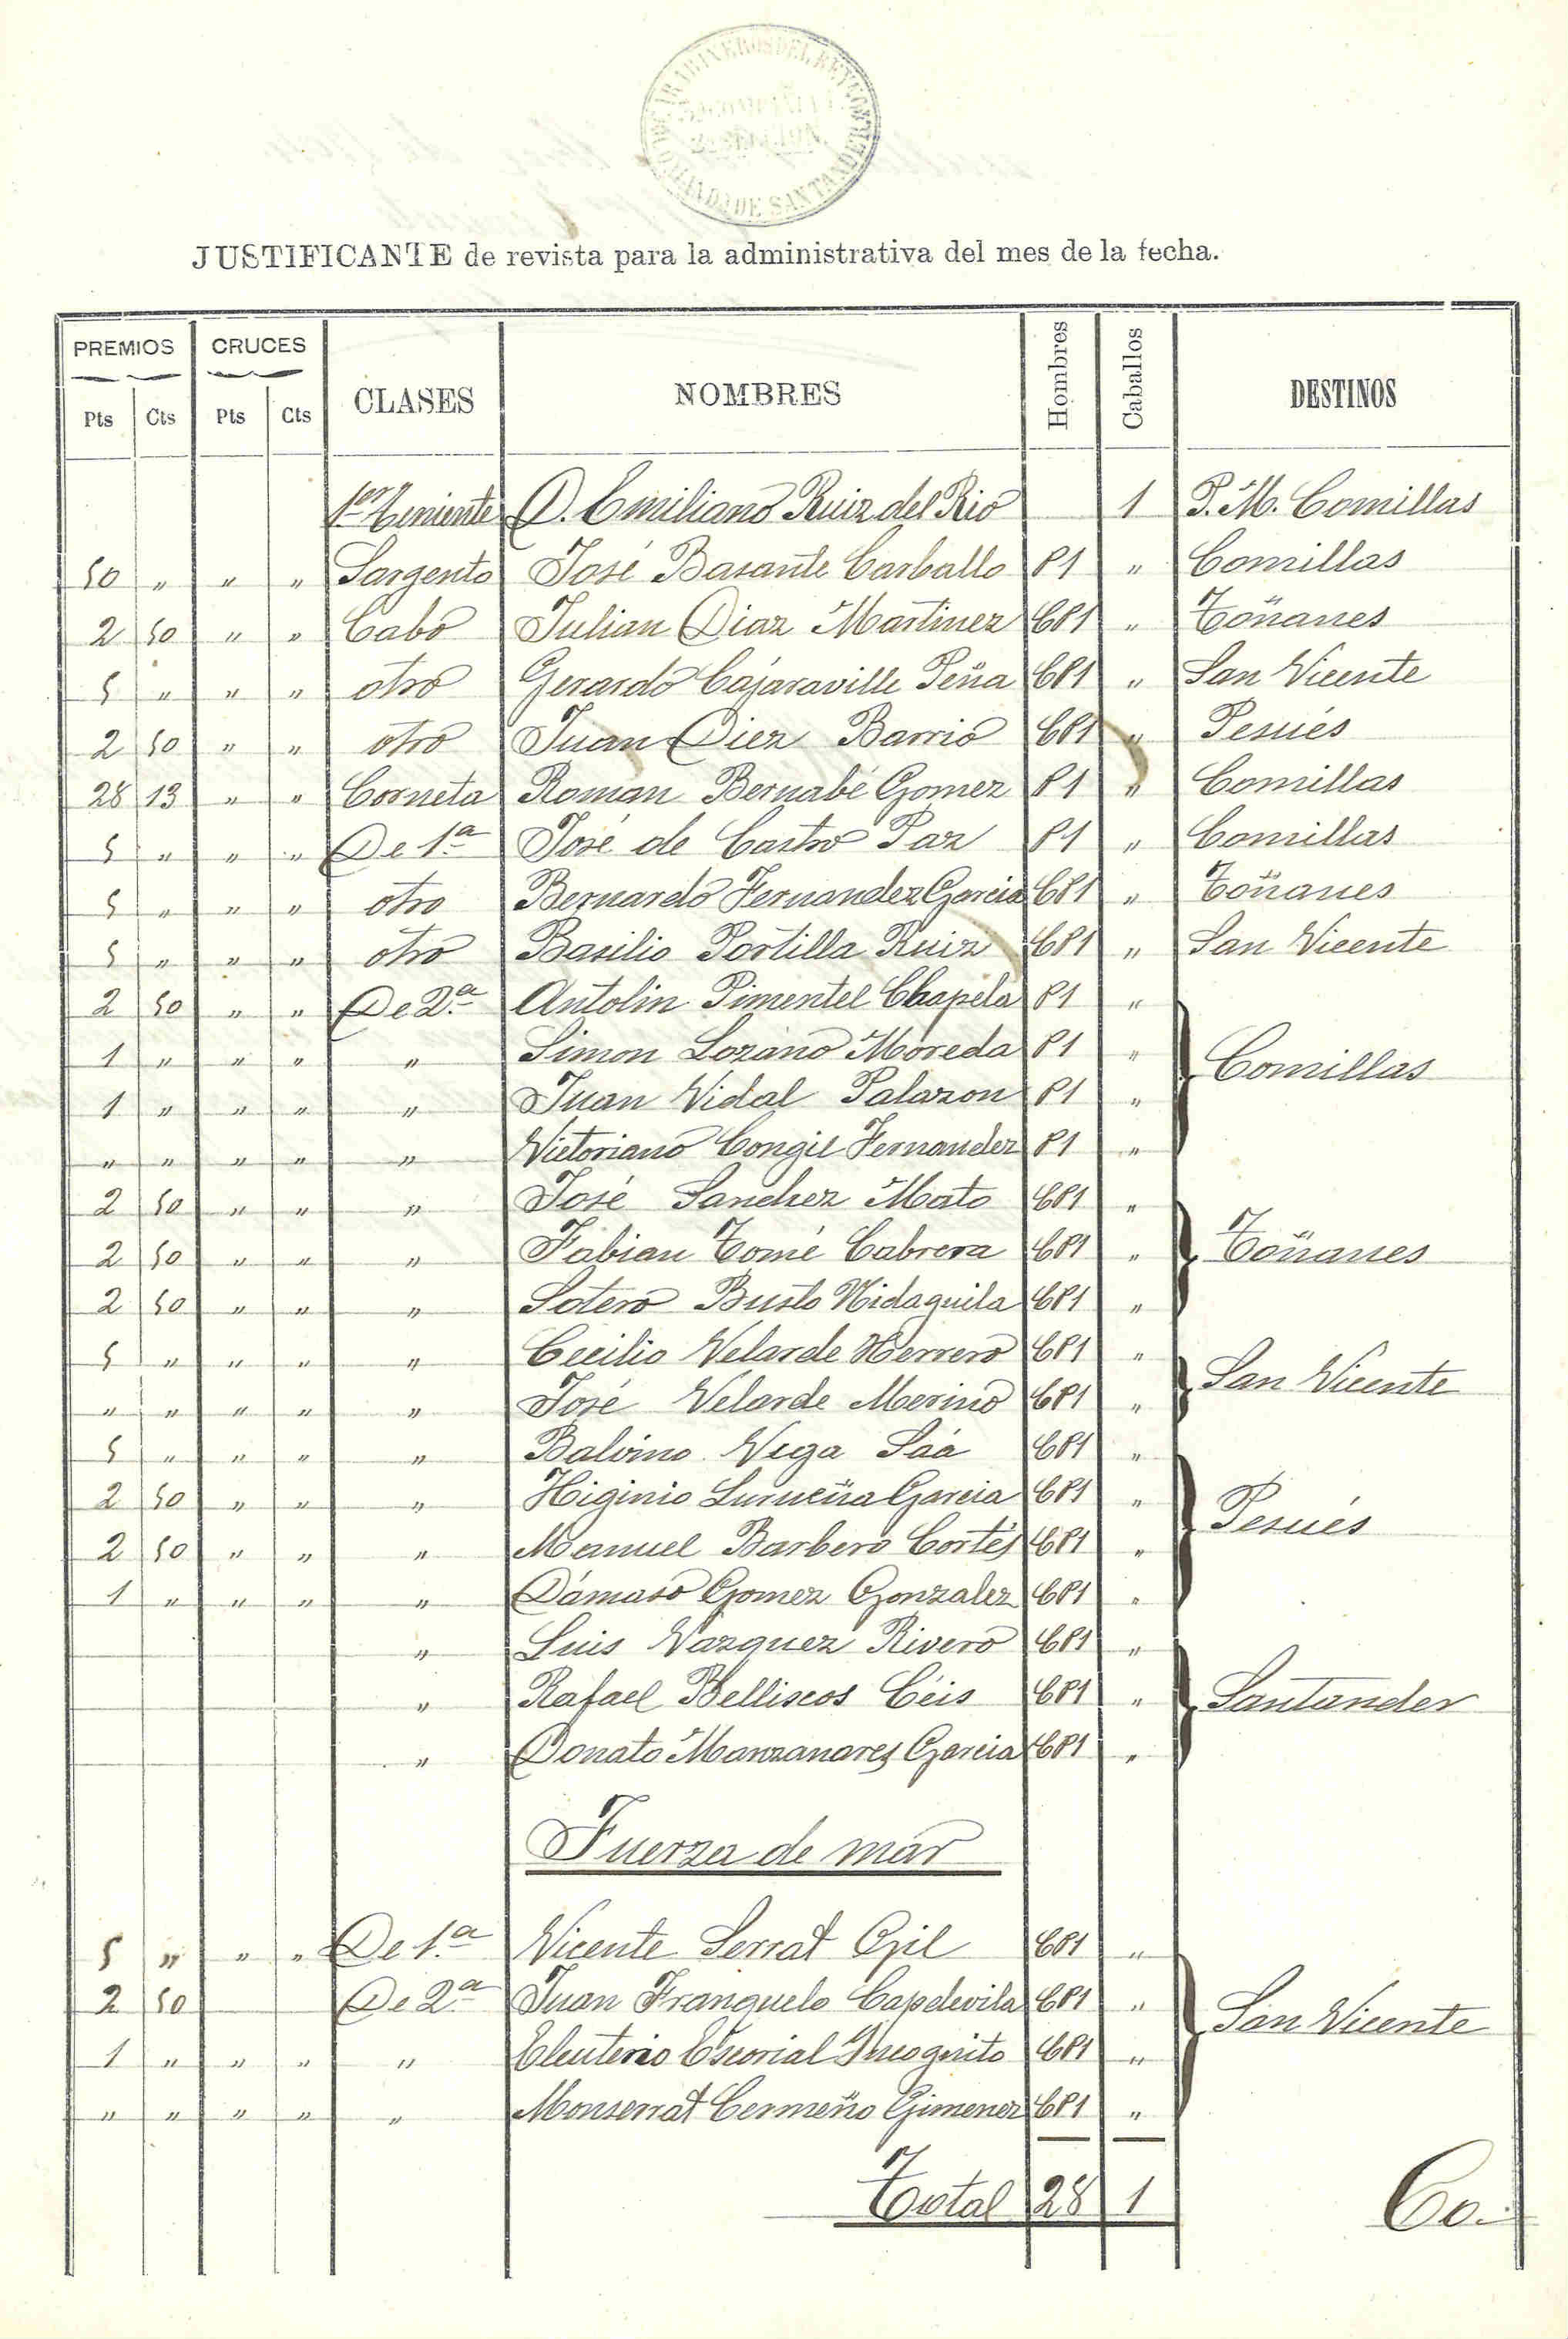 CARABINEROS DEL REYNO
COMANDA DE SANTANDER
COMPAÑIA
SECCION
JUSTIFICANTE de revista para la administrativa del mes de la fecha.
PREMIOS CRUCES CLASES NOMBRES Hombres Caballos DESTINOS
Pts Cts Pts Cts
1er Teniente D. Emiliano Ruiz del Rio 1 P. M. Comillas
50 " " " Sargento José Basante Carballo P1 " Comillas
2 50 " " Cabo Julian Diaz Martinez CP1 " Toñanes
5 " " " otro Gerardo Cajaraville Peña CP1 " San Vicente
2 50 " " otro Juan Diez Barrio CP1 " Pesués
28 13 " " Corneta Roman Bernabé Gomez P1 " Comillas
5 " " " De 1.a José de Castro Paz P1 " Comillas
5 " " " otro Bernardo Fernandez Garcia CP1 " Toñanes
5 " " " otro Basilio Portilla Ruiz CP1 " San Vicente
2 50 " " De 2.a Antolin Pimentel Chapela P1 "
1 " " " " Simon Lozano Moreda P1 " Comillas
1 " " " " Juan Vidal Palazon P1 "
" " " " " Victoriano Congil Fernandez P1 "
2 50 " " " José Sanchez Mato CP1 "
2 50 " " " Fabian Tomé Cabrera CP1 " Toñanes
2 50 " " " Sotero Busto Hidaguila CP1 "
5 " " " " Cecilio Velarde Herrero CP1 " San Vicente
" " " " " José Velarde Merino CP1 "
5 " " " " Balvino Vega Sáa CP1 "
2 50 " " " Higinio Lurueña Garcia CP1 " Pesués
2 50 " " " Manuel Barbero Cortés CP1 "
1 " " " " Dámaso Gomez Gonzalez CP1 "
" Luis Vazquez Rivero CP1 "
" Rafael Belliscos Céis CP1 " Santander
" Donato Manzanares Garcia CP1 "
Fuerza de mar
5 " " " De 1.a Vicente Serrat Gil CP1 "
2 50 De 2.a Juan Franquelo Capdevila CP1 " San Vicente
1 " " " " Eleuterio Escorial Incognito CP1 "
" " " " " Monserrat Cermeño Gimenez CP1 "
Total 28 1
Co.